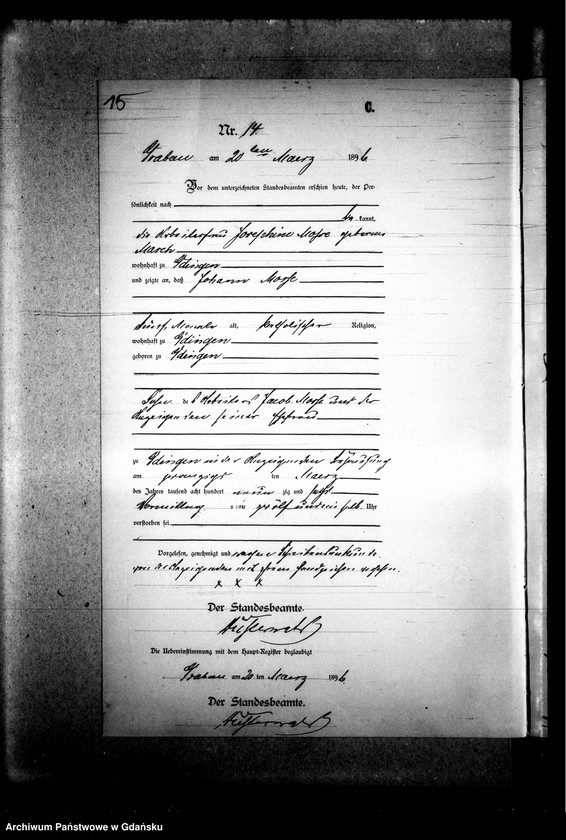 15
C.
Nr. 14.
Grabau am 20 ten Maerz 1896
Vor dem unterzeichneten Standesbeamten erschien heute, der Per-
sönlichkeit nach
be kannt,
die Arbeiterfrau Josephine geborene
March
wohnhaft zu Gdingen
und zeigte an, daß Johann
fünf Monate alt, katholischer Religion,
wohnhaft zu Gdingen
geboren zu Gdingen
Sohn des Arbeiters Jacob und der
Anzeigenden seiner Ehefrau
zu Gdingen in der Anzeigenden Behausung
am zwanzigsten Maerz
des Jahres tausend acht hundert neun zig und sechs
Vormittag um zwölf und ein halb Uhr
verstorben sei
Vorgelesen, genehmigt und wegen Schreibensunkunde
von der Anzeigenden mit ihrem Handzeichen versehen.
x x x
Der Standesbeamte.
Die Uebereinstimmung mit dem Haupt-Register beglaubigt
Grabau am 20 ten Maerz 1896
Der Standesbeamte.
Archiwum Państwowe w Gdańsku